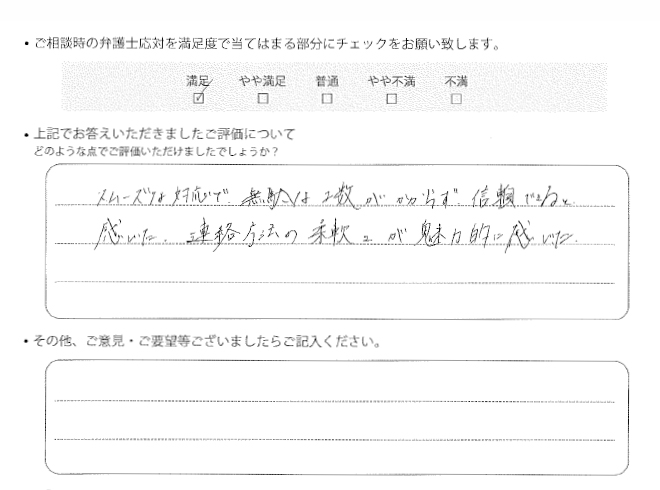 ・ご相談時の弁護士応対を満足度で当てはまる部分にチェックをお願い致します。
満足 やや満足 普通 やや不満 不満
☑ □ □ □ □
・上記でお答えいただきましたご評価について
どのような点でご評価いただけましたでしょうか？
スムーズな対応で、無駄な工数がかからず、信頼できると
感じた。連絡方法の柔軟さが魅力的に感じた。
・その他、ご意見・ご要望等ございましたらご記入ください。